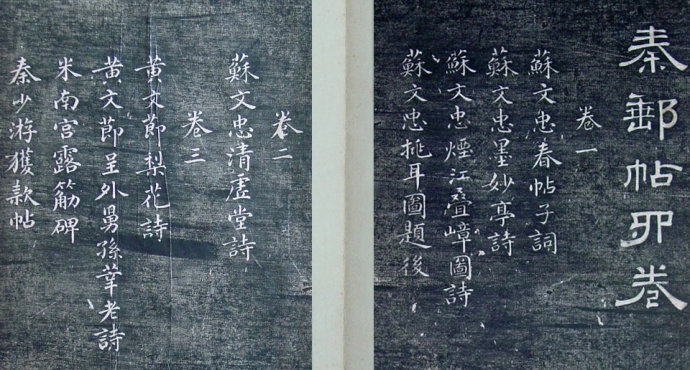 秦郵帖四卷
卷一
蘇文忠春帖子詞
蘇文忠墨妙亭詩
蘇文忠煙江叠嶂圖詩
蘇文忠挑耳圖題後
卷二
蘇文忠清虛堂詩
卷三
黄文節梨花詩
黄文節呈外舅孫莘老詩
米南宫露筋碑
秦少游獲款帖